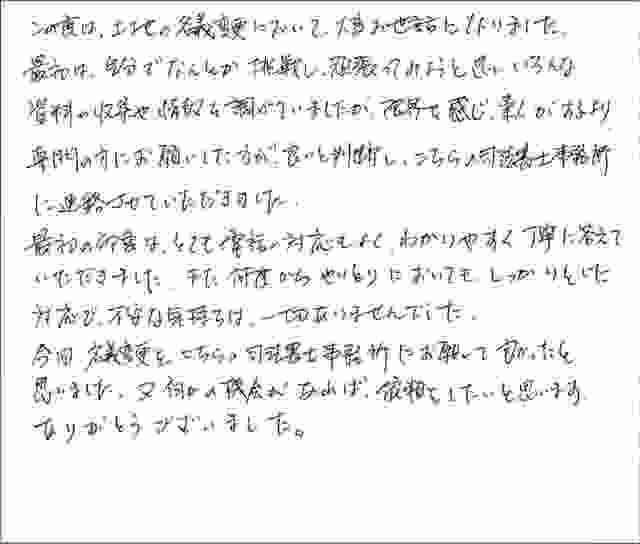 この度は、土地の名義変更において、大変お世話になりました。
最初は、自分でなんとか挑戦し、頑張ってみようと思い、いろんな
資料の収集や情報を調べていましたが、限界を感じ、素人がするより
専門の方にお願いした方が、良いと判断し、こちらの司法書士事務所
に連絡させていただきました。
最初の印象は、とても電話の対応もよく、わかりやすく丁寧に答えて
いただきました。また、何度からやりとりにおいても、しっかりとした
対応で、不安な気持ちは、一切ありませんでした。
今回、名義変更を、こちらの司法書士事務所にお願いして良かったと
思いました。又何かの機会があれば、依頼をしたいと思います。
ありがとうございました。